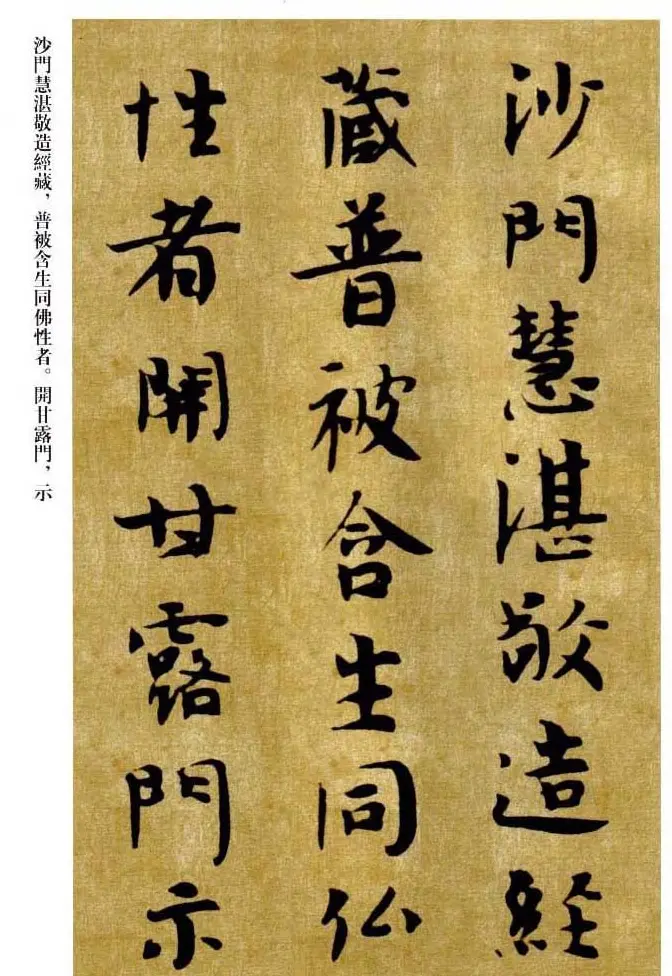 沙門慧湛敬造經
藏普被含生同仏
性者開甘露門示
沙門慧湛敬造經藏，普被含生同佛性者。開甘露門，示